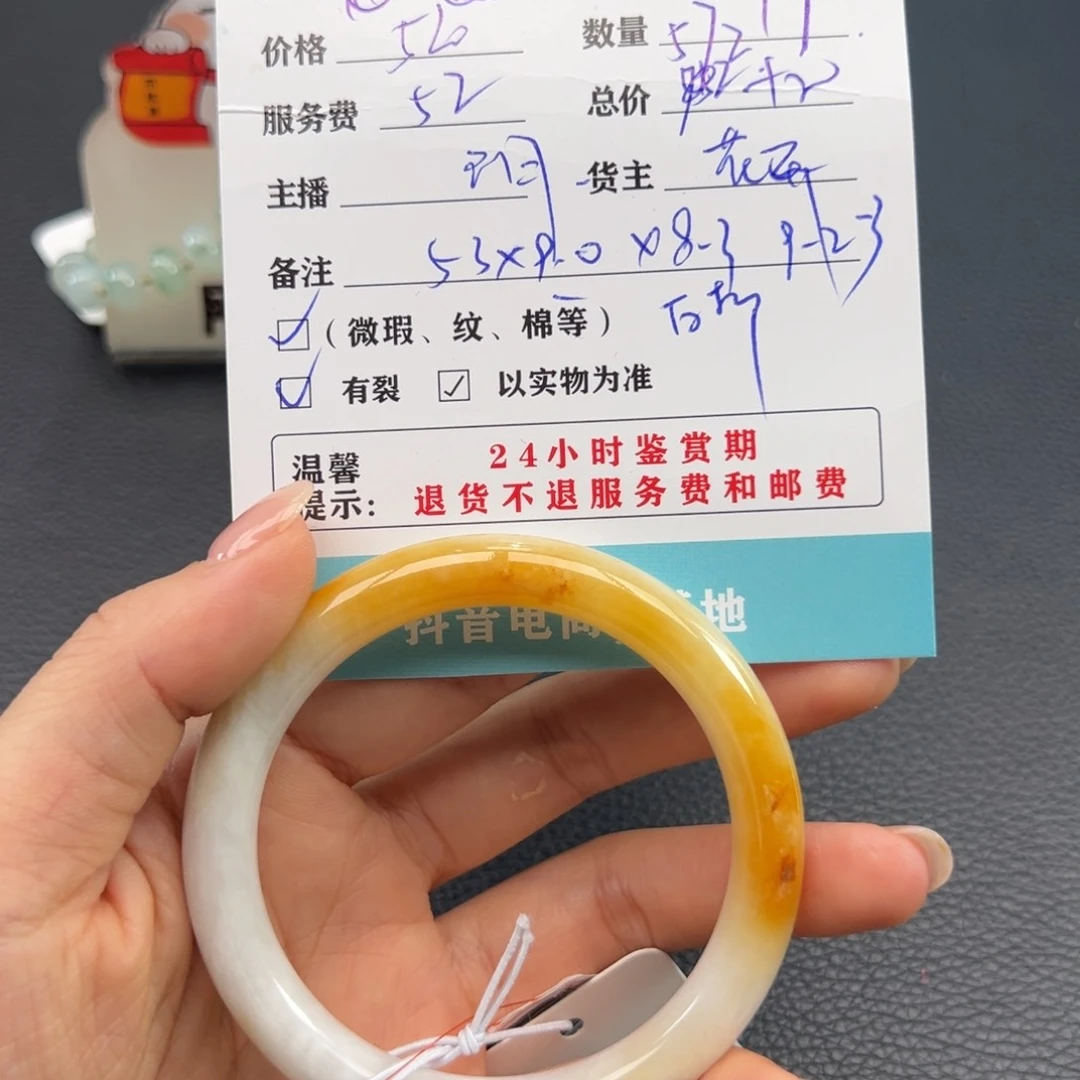 价格 520 数量 572
服务费 52 总价
主播 货主
备注 53x9.0x8.3 9-23
☑（微瑕、纹、棉等）
☑ 有裂 ☑ 以实物为准
温馨 24小时鉴赏期
提示：退货不退服务费和邮费
抖音电商 基地